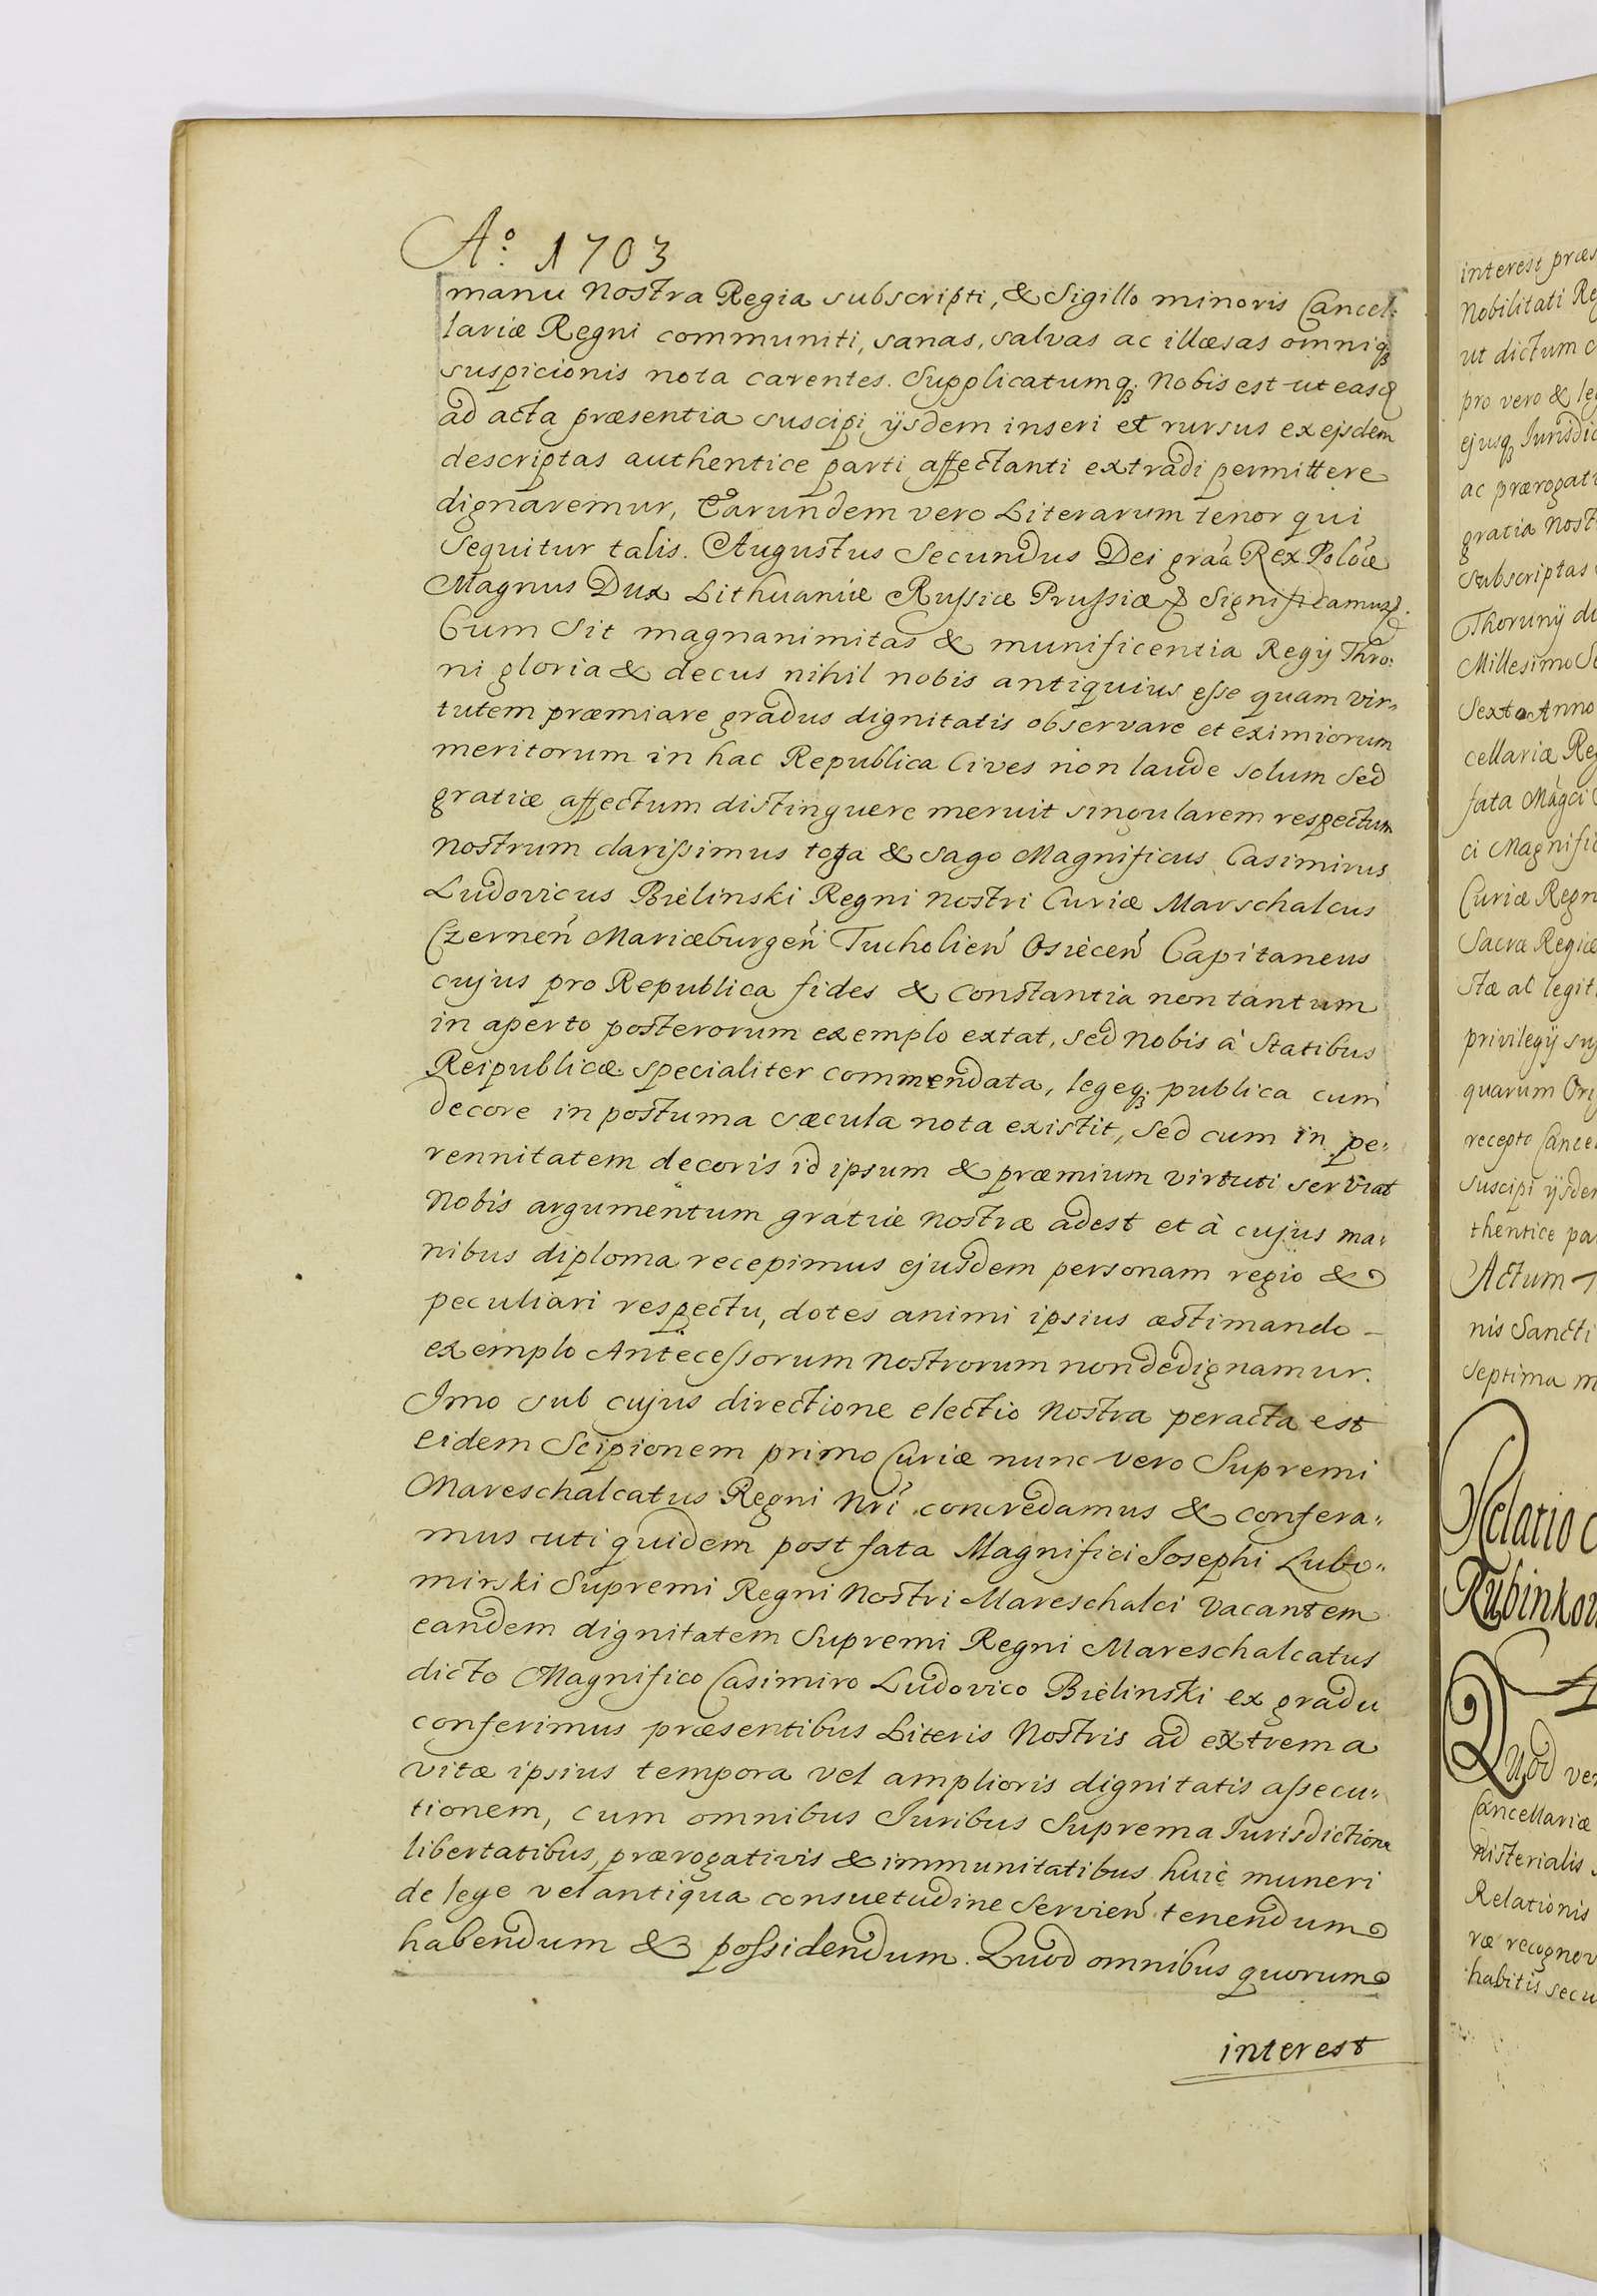 Aº 1703
manu Nostra Regia subscripti, & Sigillo minoris Cancel:
lariæ Regni communiti, sanas, salvas ac illæsas omniq;
suspicionis nota carentes. Supplicatumq; Nobis est ut easd
ad acta præsentia suscipi ijsdem inseri et rursus ex ejsdem
descriptas authentice parti affectanti extradi permittere
dignaremur, Earundem vero Literarum tenor qui
sequitur talis. Augustus Secundus Dei graã Rex Poloæ
Magnus Dux Lithuaniæ Russiæ Prussiæ & Significamus &.
Cum Sit magnanimitas & munificentia Regij Thro:
ni gloria & decus nihil nobis antiquius esse quam vir,,
tutem præmiare gradus dignitatis observare et eximiorum
meritorum in hac Republica Cives non laude solum Sed
gratiæ affectum distinguere meruit singularem respectum
nostrum clarissimus toga & sago Magnificus Casimirus
Ludovicus Bielinski Regni Nostri Curiæ Marschalcus
Czerneñ Mariæburgeñ Tucholieñ Osieceñ Capitaneus
cujus pro Republica fides & Constantia non tantum
in aperto posterorum exemplo extat, sed Nobis à Statibus
Reipublicæ specialiter commendata, legeq; publica cum
decore in postuma sæcula nota existit, Sed cum in pe,,
rennitatem decoris id ipsum & præmium virtuti serviat
Nobis argumentum gratiæ nostræ adest et à cujus ma,,
nibus diploma recepimus ejusdem personam regio &
peculiari respectu, dotes animi ipsius æstimando –
exemplo Antecessorum Nostrorum non dedignamur.
Imo sub cujus directione electio Nostra peracta est
eidem Scipionem primo Curiæ nunc vero Supremi
Mareschalcatus Regni Nri concredamus & confera,,
mus uti quidem post fata Magnifici Josephi Lubo,,
mirski Supremi Regni Nostri Mareschalci vacantem
eandem dignitatem Supremi Regni Mareschalcatus
dicto Magnifico Casimiro Ludovico Bielinski ex gradu
conferimus præsentibus Literis Nostris ad extrema
vitæ ipsius tempora vel amplioris dignitatis assecu,,
tionem, cum omnibus Juribus Suprema Jurisdictione
libertatibus, prærogativis & immunitatibus huic muneri
de lege vel antiqua consuetudine servieñ tenendum
habendum & possidendum. Quod omnibus quorum
interest
interest præs
Nobilitati Re
ut dictum c
pro vero & leg
ejusq; Jurisdic
ac prærogati
gratia Nost
subscriptas
Thorunij di
Millesimo Se
Sexto Anno
cellariæ Reg
fata Magci
ci Magnific
Curiæ Regn
Sacræ Regiæ
stæ ac legit
privilegij su
quarum Ori
recepto Cancel
suscipi ijsdem
thentice pa
Actum
nis Sancti
Septima m
Relatio
Rubinkow
Quod ver
Cancellariæ
nisterialis
Relationis
ræ recognov
habitis secu